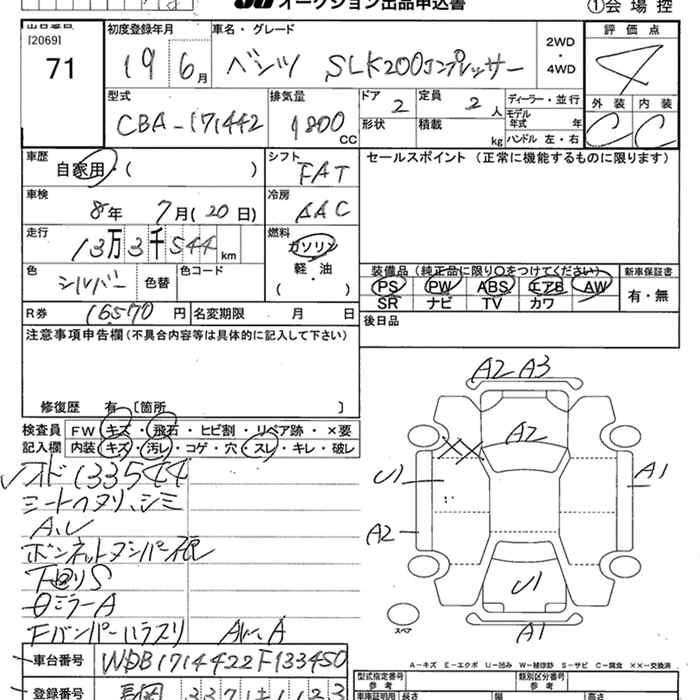 オークション出品申込書 ①会場控
出品番号 初度登録年月 車名・グレード 評価点
[2069] 71 19年 6月 ベンツ SLK200コンプレッサー 2WD・4WD 4
型式 排気量 ドア 定員 ディーラー・並行 外装 内装
CBA-171442 1800CC 2 2人 モデル年式 年 C C
形状 積載 kg ハンドル 左・右
車歴 シフト セールスポイント(正常に機能するものに限ります)
自家用・( ) FAT
車検 冷房
8年 7月(20日) AAC
走行 燃料
13万3千544km ガソリン
軽・油
( ・ )
色 シルバー 色替 色コード
装備品(純正品に限り○をつけてください) 新車保証書
PS PW ABS エアB AW 有・無
SR ナビ TV カワ
R券 16570円 名変期限 月 日 後日品
注意事項申告欄(不具合内容等は具体的に記入して下さい)
修復歴 有 [箇所 ]
検査員 FW キズ・飛石・ヒビ割・リペア跡・×要
記入欄 内装 キズ・汚レ・コゲ・穴・スレ・キレ・破レ
オド133544
シートヘタリ、シミ
A、U
ボンネットダンパー不良
下回りS
ミラーA
Fバンパーハラスリ AW A
車台番号 WDB1714422F133450
登録番号
A2 A3
A2
XX
U1
A1
A2
U1
A1
スペア
A-キズ E-エクボ U-凹み W-補修跡 S-サビ C-腐食 ××-交換済
型式指定番号 参考 類別区分番号 参考
車車証明用 長さ 幅 高さ